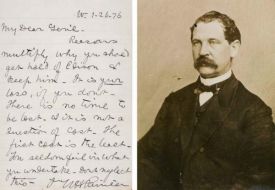 W. 1-26-76
My Dear Genl.
Reasons
multiply why you should
get hold of Edison &
keep him - It is your
loss, if you don't -
There is no time to
be lost. & it is not a
question of cost. The
first cost is the least.
You seldom fail in what
you undertake - Don't neglect
this -